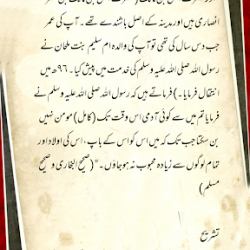 انصاری ہیں اور مدینہ کے اصل باشندے تھے۔ آپ کی عمر
جب دس سال کی تھی تو آپ کی والدہ ام سلیم بنت ملحان نے
رسول اللہ صلی اللہ علیہ وسلم کی خدمت میں پیش کیا۔ ۹۶ھ میں
انتقال فرمایا۔) فرماتے ہیں کہ رسول اللہ صلی اللہ علیہ وسلم نے
فرمایا تم میں سے کوئی آدمی اس وقت تک (کامل) مومن نہیں
بن سکتا جب تک کہ میں اس کو اس کے باپ، اس کی اولاد اور
تمام لوگوں سے زیادہ محبوب نہ ہو جاؤں۔" (صحیح البخاری و صحیح
مسلم)
تشریح